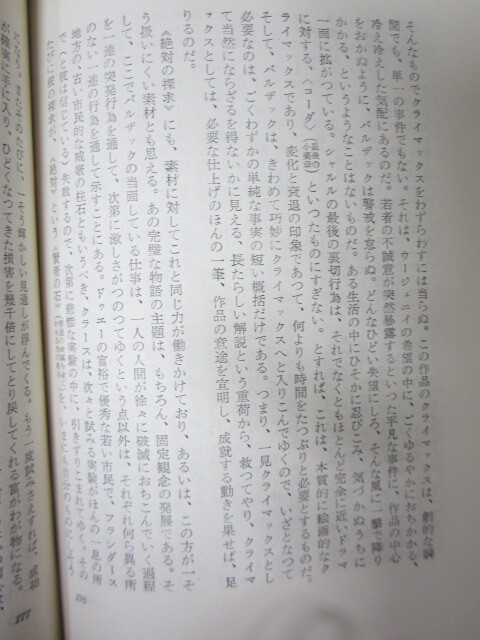 そんなものでクライマックスをわずらわすには当らぬ。この作品のクライマックスは、劇的な瞬
間でも、単一の事件でもない。それは、ウージェニイの希望の中に、ごくゆるやかにおちかかる、
冷え冷えした気配にあるのだ。若者の不誠意が突然暴露するといつた平凡な事件に、作品の中心
をおかぬように、バルザックは警戒を怠らぬ。どんなひどい失望にしろ、そんな風に一撃で降り
かかる、というようなことはないものだ。ある生活の中にひそかに忍びこみ、気づかぬうちに
一面に拡がつている。シャルルの最後の裏切行為は、それでなくともほとんど完全に近いドラマ
に対する、《コーダ》(最後の小楽章)といつたものにすぎない。とすれば、これは、本質的に絵画的なク
ライマックスであり、変化と衰退の印象であつて、何よりも時間をたつぷりと必要とするものだ。
そして、バルザックは、きわめて巧妙にクライマックスへと入りこんでゆくので、いざとなつて
必要なのは、ごくわずかの単純な事実の短い概括だけである。つまり、一見クライマックスとし
て当然にならざるを得ないかに見える、長たらしい解説という重荷から、救つてやり、クライマ
ックスとしては、必要な仕上げのほんの一筆、作品の意途を宣明し、成就する動きを果せば、足
りるのだ。
《絶対の探求》にも、素材に対してこれと同じ力が働きかけており、あるいは、この方が一そ
う扱いにくい素材とも思える。あの完璧な物語の主題は、もちろん、固定観念の発展である。そ
して、ここでバルザックの当面している仕事は、一人の人間が徐々に破滅におちこんでいく過程
を一連の突発行為を通して、次第に激しさがつのつてゆくという点以外は、それぞれ何ら異る所
のない一連の行為を通して示すことにある。ドゥエーの富裕で優秀な若い市民で、フランダース
地方の、古い市民的な威厳の柱石ともいうべき、クラースは、次々と試みる実験がほんの一息の所
で、(と彼は信じている)失敗するので、次第に悲惨な実験の中に、引きずりこまれてゆく。その
たびに彼の探求が、《絶対》という《賢者の石》を、いまにも自分のものに
216
になり、またそのたびに、一そう輝かしい見通しが浮んでくる。もう一度試みさえすれば、成功
が確実に手に入り、ひどくなつてきた損害を幾千倍にしてとり戻してくれる富がわが物になる。
177